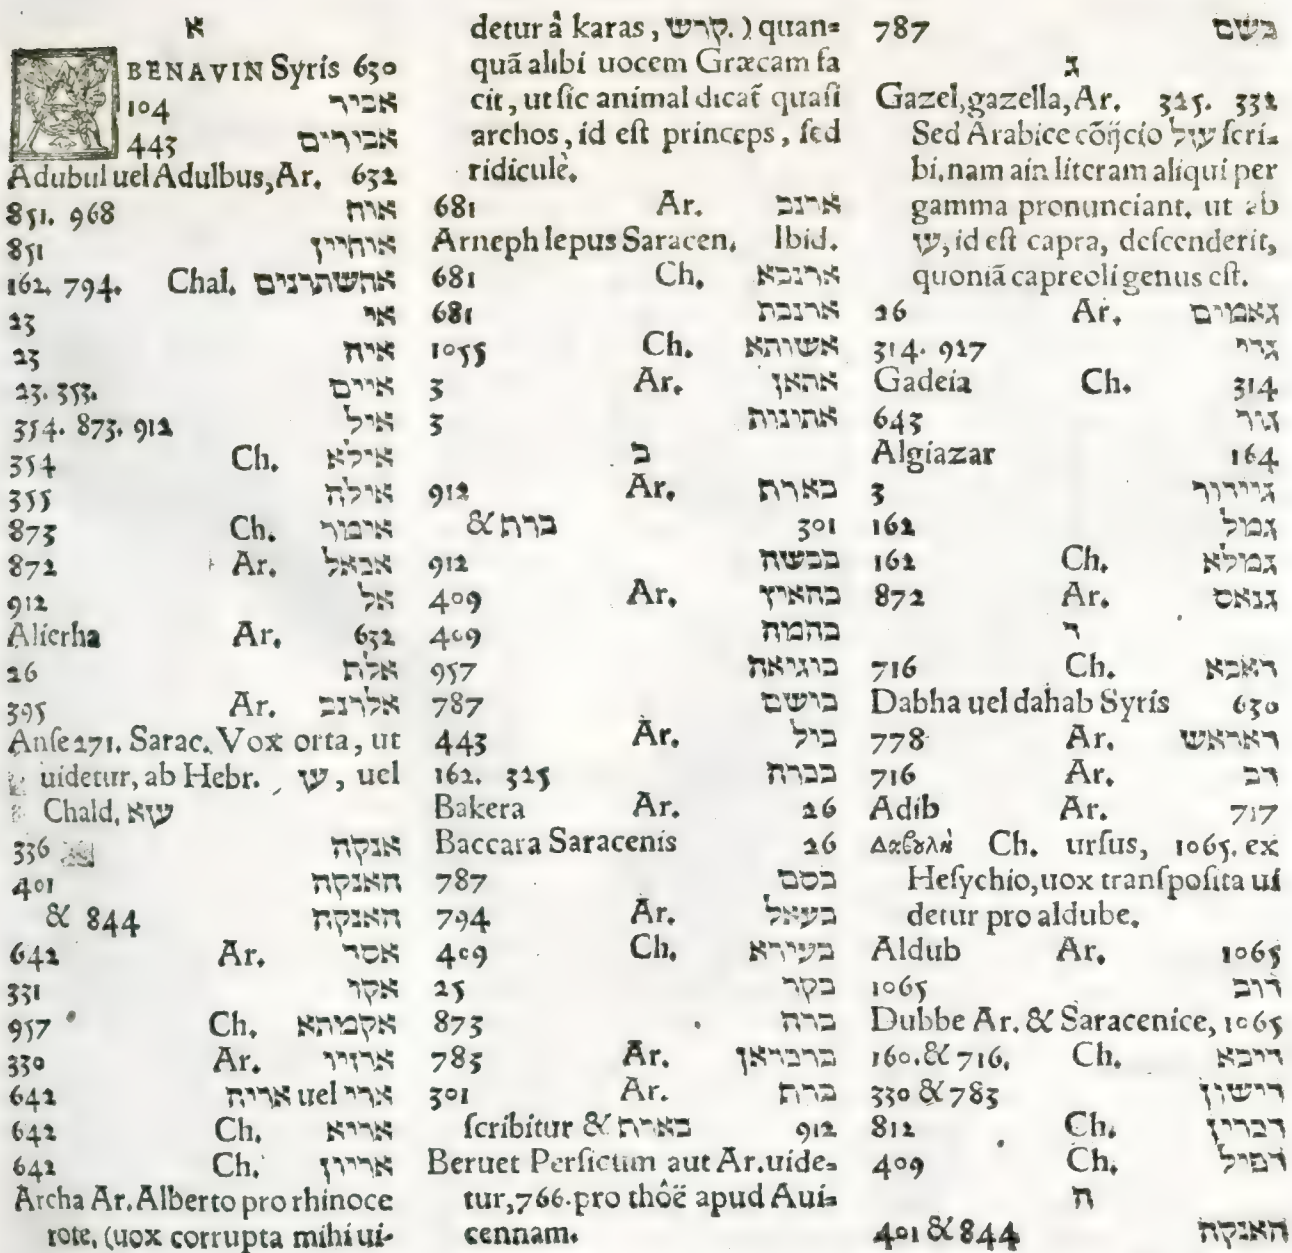 א
ABENAVIN Syris 630
104 אביר
443 אבירים
Adubul uel Adulbus, Ar. 632
851. 968 אוח
851 אוחיין
162. 794. Chal. אחשתרנים
23 אי
23 איה
23. 353. איים
354. 873. 912 איל
354 Ch. אילא
355 אילה
873 Ch. אימר
872 Ar. אכאל
912 אל
Alierha Ar. 632
26 אלה
395 Ar. אלרנב
Anse 271. Sarac. Vox orta, ut
uidetur, ab Hebr. עז, uel
Chald. עזא
336 אנקה
401 האנקה
& 844 האנקה
642 Ar. אסד
331 אקו
957 Ch. אקמתא
330 Ar. ארויו
642 ארי uel אריה
642 Ch. אריא
642 Ch. אריון
Archa Ar. Alberto pro rhinoce
rote, (uox corrupta mihi ui-
detur à karas, קרש.) quan=
quã alibi uocem Græcam fa
cit, ut sic animal dicat̃ quasi
archos, id est princeps, sed
ridiculè.
681 Ar. ארנב
Arneph lepus Saracen. Ibid.
681 Ch. ארנבא
681 ארנבת
1055 Ch. אשותא
3 Ar. אתאן
3 אתונות
ב
912 Ar. בארח
& ברח 301
912 כבשה
409 Ar. בהאיץ
409 בהמה
957 בוגיאה
787 בושם
443 Ar. ביל
162. 325 בכרה
Bakera Ar. 26
Baccara Saracenis 26
787 בסם
794 Ar. בעאל
409 Ch. בעירא
25 בקר
873 ברה
785 Ar. ברבראן
301 Ar. ברח
scribitur & בארח 912
Beruet Persicum aut Ar. uide-
tur, 766. pro thôë apud Aui-
cennam.
787 בשם
ג
Gazel, gazella, Ar. 325. 332
Sed Arabice cõijcio עזל scri-
bi, nam ain literam aliqui per
gamma pronunciant. ut ab
עז, id est capra, descenderit,
quoniã capreoli genus est.
26 Ar. גאמים
314. 927 גדי
Gadeia Ch. 314
643 גור
Algiazar 164
3 גיידור
162 גמל
162 Ch. גמלא
872 Ar. גנאס
ד
716 Ch. דאבא
Dabha uel dahab Syris 630
778 Ar. דאראש
716 Ar. דב
Adib Ar. 717
Δαβουλὰ Ch. ursus, 1065. ex
Hesychio, uox transposita ui
detur pro aldube.
Aldub Ar. 1065
1065 דוב
Dubbe Ar. & Saracenice, 1065
160. & 716. Ch. דיבא
330 & 783 דישון
812 Ch. דברין
409 Ch. דפיל
ה
401 & 844 האנקה